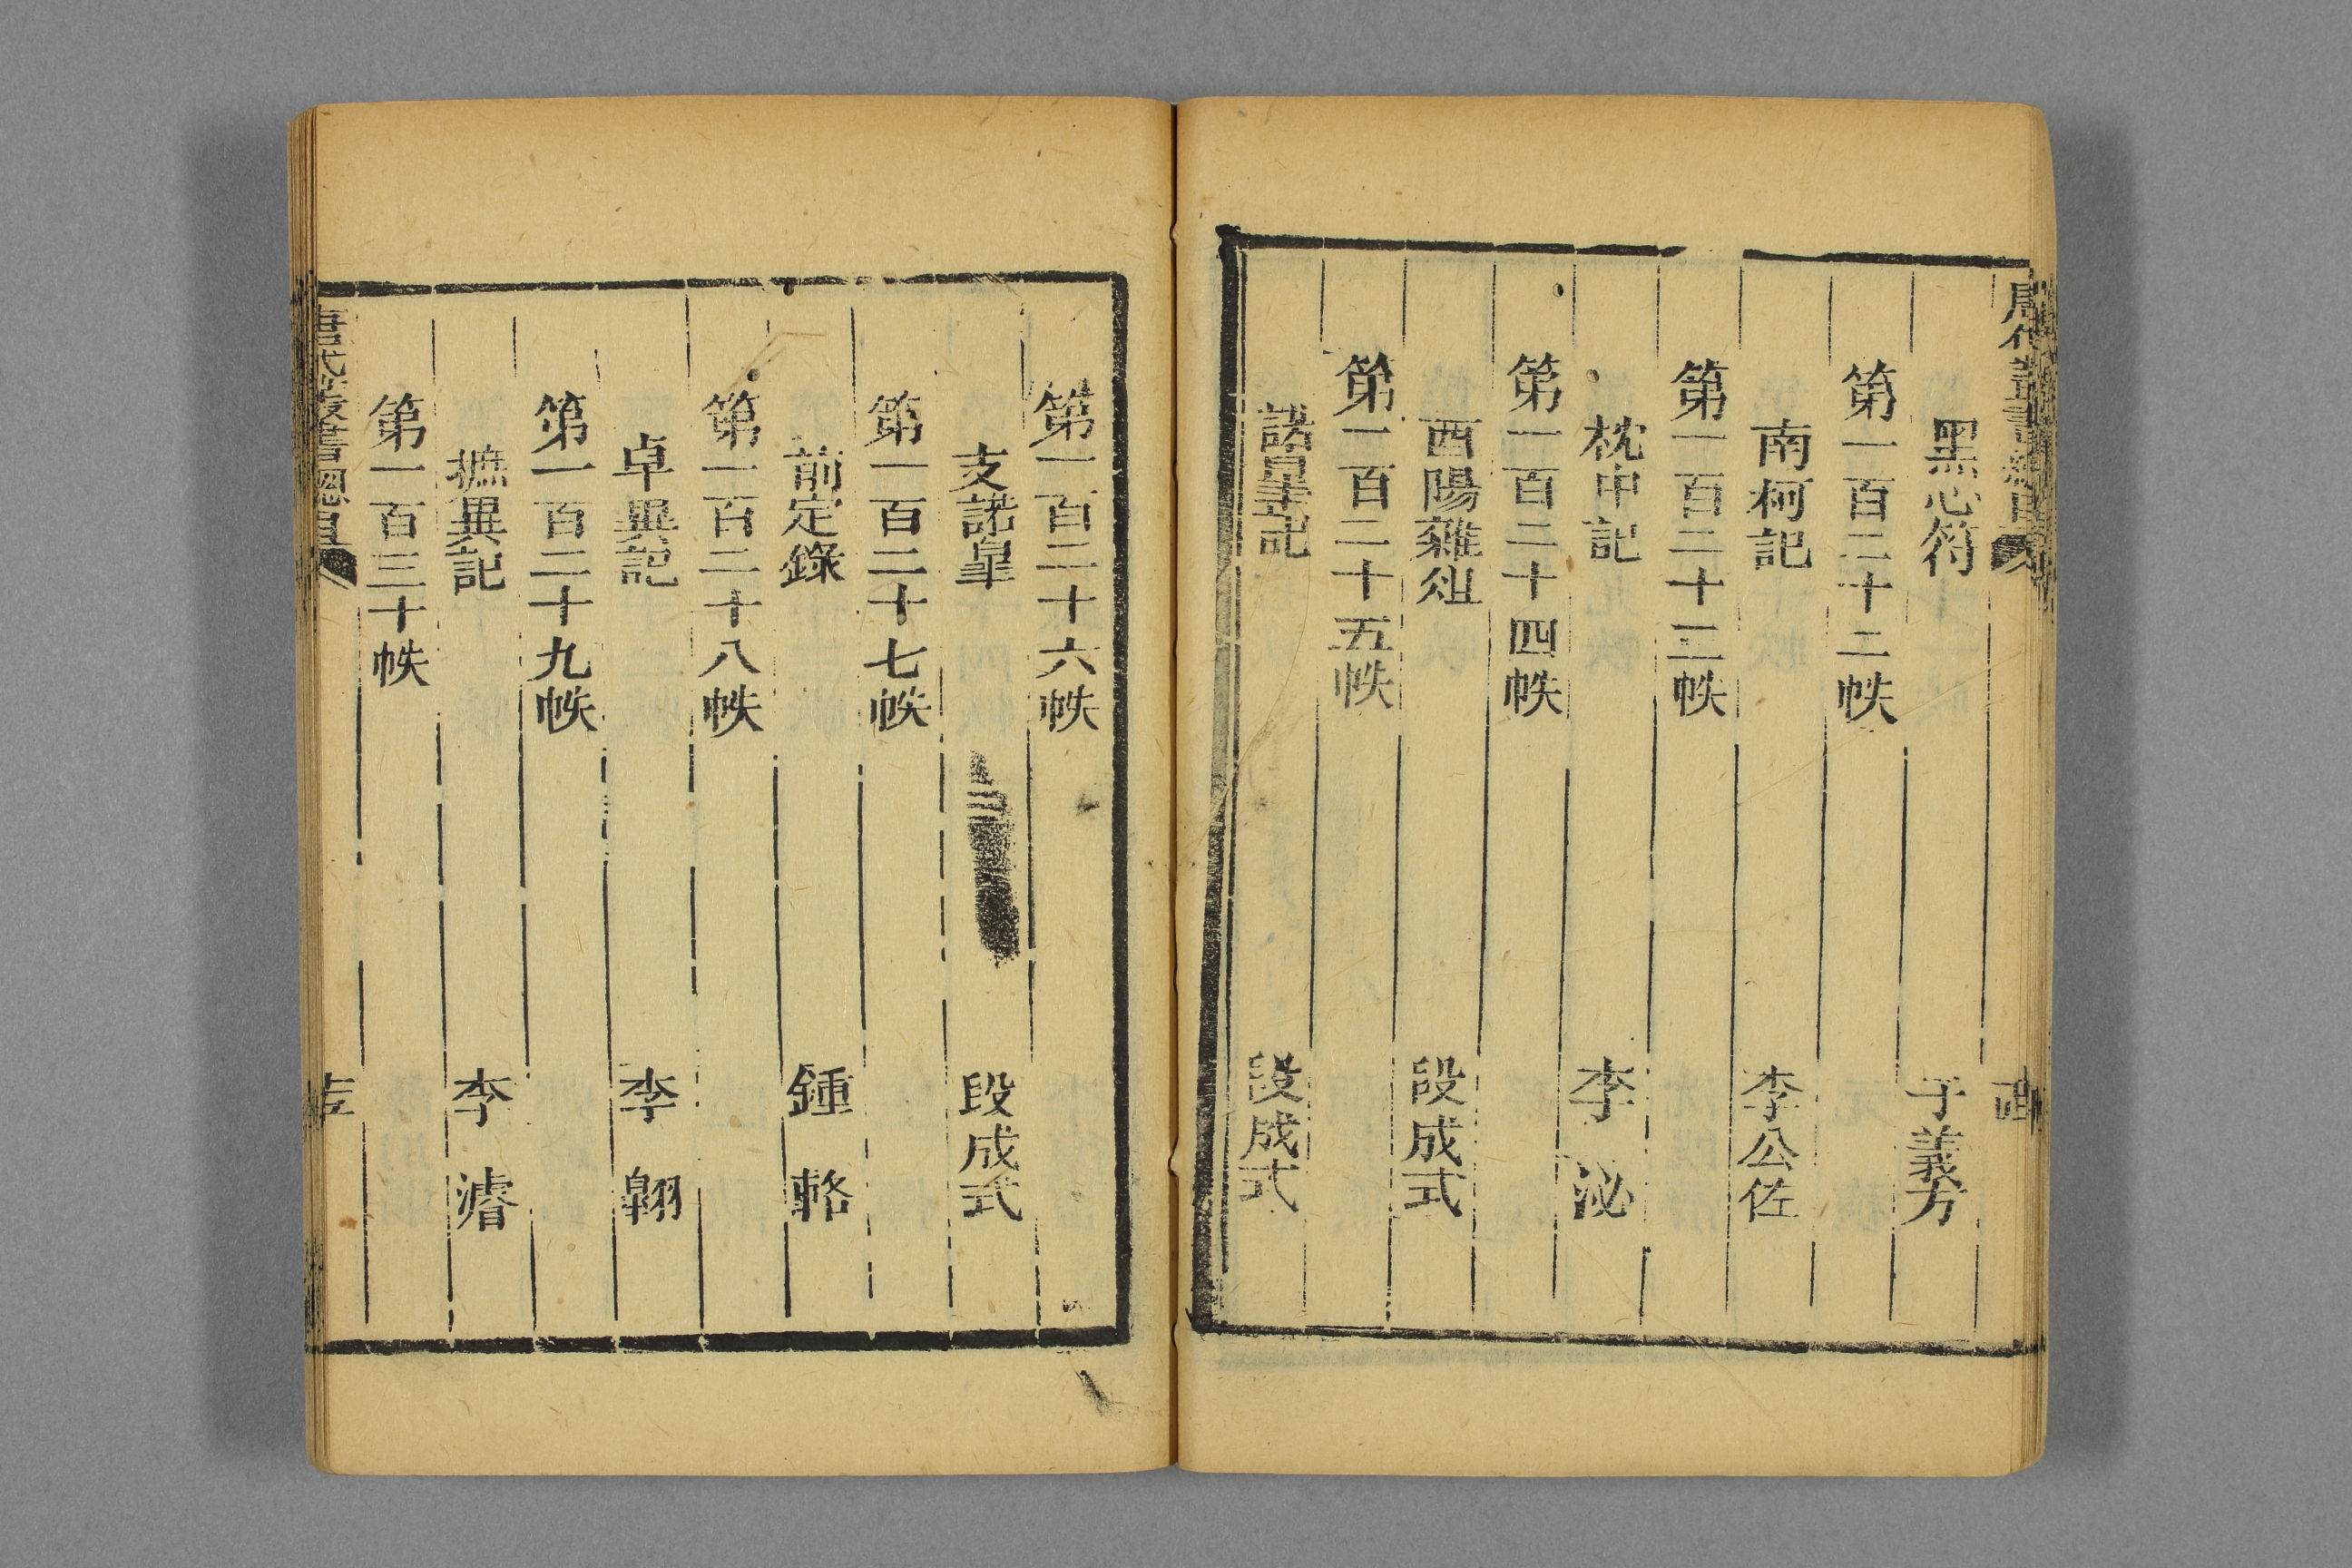 唐代叢書總目
黑心符 于義方
第一百二十二帙
南柯記 李公佐
第一百二十三帙
枕中記 李泌
第一百二十四帙
酉陽雜俎 段成式
第一百二十五帙
諾皋記 段成式
第一百二十六帙
支諾皋 段成式
第一百二十七帙
前定錄 鍾輅
第一百二十八帙
卓異記 李翱
第一百二十九帙
摭異記 李濬
第一百三十帙
唐代叢書總目